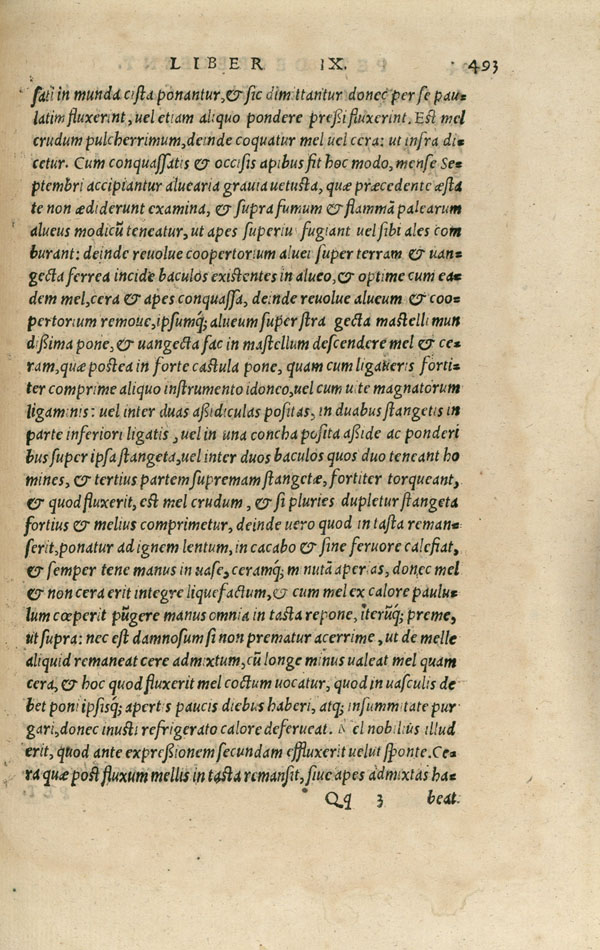 LIBER IX. 493
sati in munda cista ponantur, & sic dimittantur donec per se pau-
latim fluxerint, uel etiam aliquo pondere preßi fluxerint. Est mel
crudum pulcherrimum, deinde coquatur mel uel cera: ut infra di-
cetur. Cum conquassatis & occisis apibus fit hoc modo, mense Se-
ptembri accipiantur aluearia grauia uetusta, quæ præcedente æsta
te non ædiderunt examina, & supra fumum & flammã palearum
alueus modicũ teneatur, ut apes superiu fugiant uel sibi ales com
burant: deinde reuolue coopertorium aluei super terram & uan-
gecta ferrea incide baculos existentes in alueo, & optime cum ea-
dem mel, cera & apes conquassa, deinde reuolue alueum & coo-
pertorium remoue, ipsumq́; alueum super stra gecta mastelli mun
dißima pone, & uangecta fac in mastellum descendere mel & ce-
ram, quæ postea in forte castula pone, quam cum ligaueris forti-
ter comprime aliquo instrumento idoneo, uel cum uite magnatorum
ligaminis: uel inter duas aßidiculas positas, in duabus stangetis in
parte inferiori ligatis, uel in una concha posita aßide ac ponderi
bus super ipsa stangeta, uel inter duos baculos quos duo teneant ho
mines, & tertius partem supremam stangetæ, fortiter torqueant,
& quod fluxerit, est mel crudum, & si pluries dupletur stangeta
fortius & melius comprimetur, deinde uero quod in tasta reman-
serit, ponatur ad ignem lentum, in cacabo & sine feruore calefiat,
& semper tene manus in uase, ceramq́; minutã aperias, donec mel
& non cera erit integre liquefactum, & cum mel ex calore paulu-
lum cœperit pũgere manus omnia in tasta repone, iterũq́; preme,
ut supra: nec est damnosum si non prematur acerrime, ut de melle
aliquid remaneat cere admixtum, cũ longe minus ualeat mel quam
cera, & hoc quod fluxerit mel coctum uocatur, quod in uasculis de
bet poni ipsisq́; apertis paucis diebus haberi, atq; in summitate pur
gari, donec inusti refrigerato calore deferueat. Mel nobilius illud
erit, quod ante expreßionem secundam effluxerit uelut sponte. Ce-
ra quæ post fluxum mellis in tasta remansit, siue apes admixtas ha-
Qq 3 beat